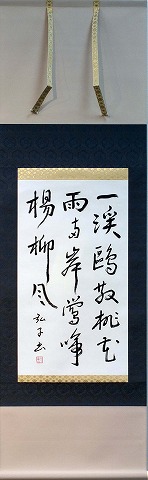 一渓鴎散桃花
雨両岸鶯啼
楊柳風 弘子書